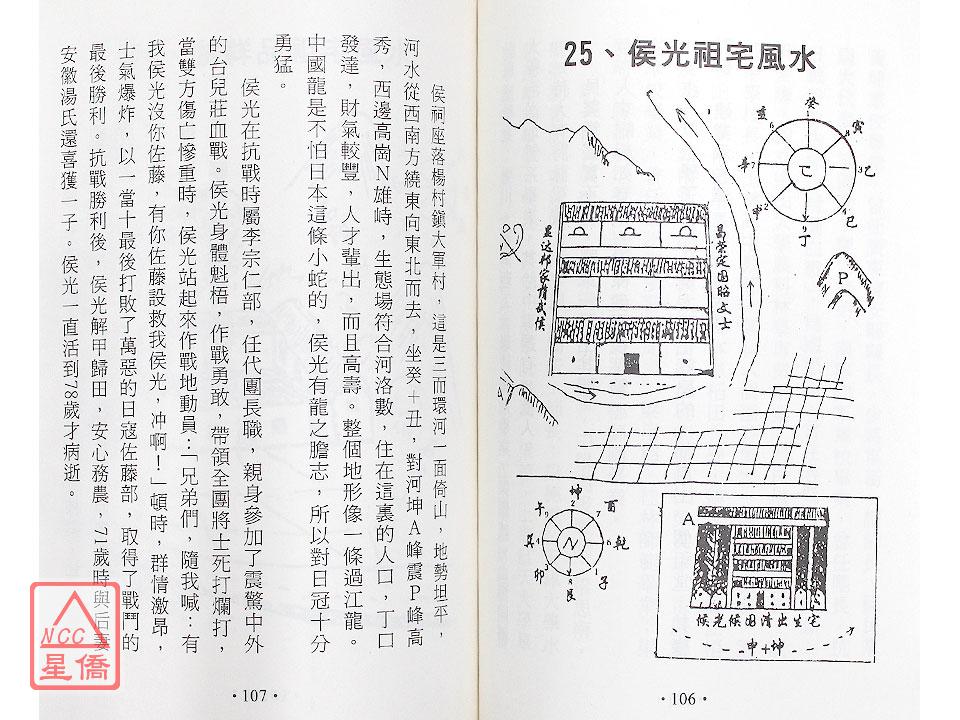 25、侯光祖宅風水
癸
寅
乙
巳
丁
申
辛
亥
1
6
8
7
P
昌榮定国略文士
显达邦家精武侯
坤
酉
乾
子
艮
卯
巽
午
N
2
7
6
1
A
侯光侯田清出生宅
申+坤
·106·
侯祠座落楊村鎮大軍村，這是三而環河一面倚山，地勢坦平，
河水從西南方繞東向東北而去，坐癸+丑，對河坤A峰震P峰高
秀，西邊高崗N雄峙，生態場符合河洛數，住在這裏的人口，丁口
發達，財氣較豐，人才輩出，而且高壽。整個地形像一條過江龍。
中國龍是不怕日本這條小蛇的，侯光有龍之膽志，所以對日冠十分
勇猛。
侯光在抗戰時屬李宗仁部，任代團長職，親身參加了震驚中外
的台兒莊血戰。侯光身體魁梧，作戰勇敢，帶領全團將士死打爛打，
當雙方傷亡慘重時，侯光站起來作戰地動員：「兄弟們，隨我喊：有
我侯光沒你佐藤，有你佐藤設救我侯光，冲啊！」頓時，群情激昂，
士氣爆炸，以一當十最後打敗了萬惡的日寇佐藤部，取得了戰鬥的
最後勝利。抗戰勝利後，侯光解甲歸田，安心務農，71歲時與后妻
安徽湯氏還喜獲一子。侯光一直活到78歲才病逝。
·107·
NCC
星僑